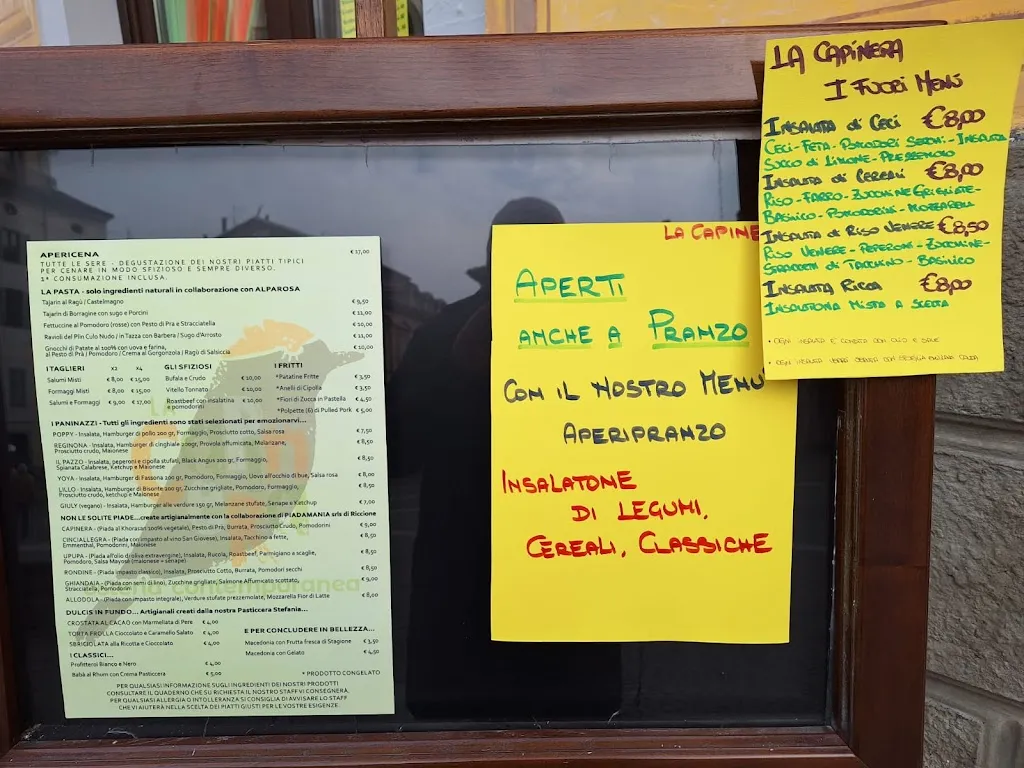 APERICENA € 17,00
TUTTE LE SERE - DEGUSTAZIONE DEI NOSTRI PIATTI TIPICI
PER CENARE IN MODO SFIZIOSO E SEMPRE DIVERSO.
1ª CONSUMAZIONE INCLUSA.
LA PASTA - solo ingredienti naturali in collaborazione con ALPAROSA
Tajarin al Ragù / Castelmagno € 9,50
Tajarin di Borragine con sugo e Porcini € 11,00
Fettuccine al Pomodoro (rosse) con Pesto di Pra e Stracciatella € 10,00
Ravioli del Plin Culo Nudo / in Tazza con Barbera / Sugo d'Arrosto € 11,00
Gnocchi di Patate al 100% con uova e farina, € 10,00
al Pesto di Pra / Pomodoro / Crema al Gorgonzola / Ragù di Salsiccia
I TAGLIERI x2 x4
Salumi Misti € 8,00 € 15,00
Formaggi Misti € 8,00 € 15,00
Salumi e Formaggi € 9,00 € 17,00
GLI SFIZIOSI
Bufala e Crudo € 10,00
Vitello Tonnato € 10,00
Roastbeef con insalatina € 10,00
e pomodorini
I FRITTI
*Patatine Fritte € 3,50
*Anelli di Cipolla € 3,50
*Fiori di Zucca in Pastella € 4,50
*Polpette (6) di Pulled Pork € 5,00
I PANINAZZI - Tutti gli ingredienti sono stati selezionati per emozionarvi...
POPPY - Insalata, Hamburger di pollo 200 gr, Formaggio, Prosciutto cotto, Salsa rosa € 7,50
REGINONA - Insalata, Hamburger di cinghiale 200gr, Provola affumicata, Melanzane, € 8,50
Prosciutto crudo, Maionese
IL PAZZO - Insalata, peperoni e cipolla stufati, Black Angus 200 gr, Formaggio, € 8,50
Spianata Calabrese, Ketchup e Maionese
YOYA - Insalata, Hamburger di Fassona 200 gr, Pomodoro, Formaggio, Uovo all'occhio di bue, Salsa rosa € 8,00
LILLO - Insalata, Hamburger di Bisonte 200 gr, Zucchine grigliate, Pomodoro, Formaggio, € 8,50
Prosciutto crudo, ketchup e Maionese
GIULY (vegano) - Insalata, Hamburger alle verdure 150 gr, Melanzane stufate, Senape e Ketchup € 7,00
NON LE SOLITE PIADE...create artigianalmente con la collaborazione di PIADAMANIA srls di Riccione
CAPINERA - (Piada al Khorasan 100% vegetale), Pesto di Prà, Burrata, Prosciutto Crudo, Pomodorini € 9,00
CINCIALLEGRA - (Piada con impasto al vino San Giovese), Insalata, Tacchino a fette, € 8,50
Emmenthal, Pomodorini, Maionese
UPUPA - (Piada all'olio di oliva extravergine), Insalata, Rucola, Roastbeef, Parmigiano a scaglie, € 8,50
Pomodoro, Salsa Mayosé (maionese + senape)
RONDINE - (Piada impasto classico), Insalata, Prosciutto Cotto, Burrata, Pomodori secchi € 8,50
GHIANDAIA - (Piada con semi di lino), Zucchine grigliate, Salmone Affumicato scottato, € 9,00
Stracciatella, Pomodorini
ALLODOLA - (Piada con impasto integrale), Verdure stufate prezzemolate, Mozzarella Fior di Latte € 8,00
contemporanea
DULCIS IN FUNDO... Artigianali creati dalla nostra Pasticcera Stefania...
CROSTATA AL CACAO con Marmellata di Pere € 4,00
TORTA FROLLA Cioccolato e Caramello Salato € 4,00
SBRICIOLATA alla Ricotta e Cioccolato € 4,00
I CLASSICI...
Profitterol Bianco e Nero € 4,00
Babà al Rhum con Crema Pasticcera € 5,00
E PER CONCLUDERE IN BELLEZZA...
Macedonia con Frutta fresca di Stagione € 3,50
Macedonia con Gelato € 4,50
* PRODOTTO CONGELATO
PER QUALSIASI INFORMAZIONE SUGLI INGREDIENTI DEI NOSTRI PRODOTTI
CONSULTARE IL QUADERNO CHE SU RICHIESTA IL NOSTRO STAFF VI CONSEGNERÀ,
PER QUALSIASI ALLERGIA O INTOLLERANZA SI CONSIGLIA DI AVVISARE LO STAFF
CHE VI AIUTERÀ NELLA SCELTA DEI PIATTI GIUSTI PER LE VOSTRE ESIGENZE.
LA CAPINE
APERTI
ANCHE A PRANZO
CON IL NOSTRO MENU'
APERIPRANZO
INSALATONE
DI LEGUMI,
CEREALI, CLASSICHE
LA CAPINERA
I FUORI MENÙ
INSALATA di CECI €8,00
CECI - FETA - POMODORI SECCHI - INSALATA
SUCCO di LIMONE - PREZZEMOLO
INSALATA di CEREALI €8,00
RISO - FARRO - ZUCCHINE GRIGLIATE -
BASILICO - POMODORINI - MOZZARELLA
INSALATA di RISO VENERE €8,50
RISO VENERE - PEPERONI - ZUCCHINE -
STRACCETTI di TACCHINO - BASILICO
INSALATA RICCA €8,00
INSALATONA MISTA A SCELTA
• OGNI INSALATA È CONDITA CON OLIO E SALE
• OGNI INSALATA VERRÀ SERVITA CON